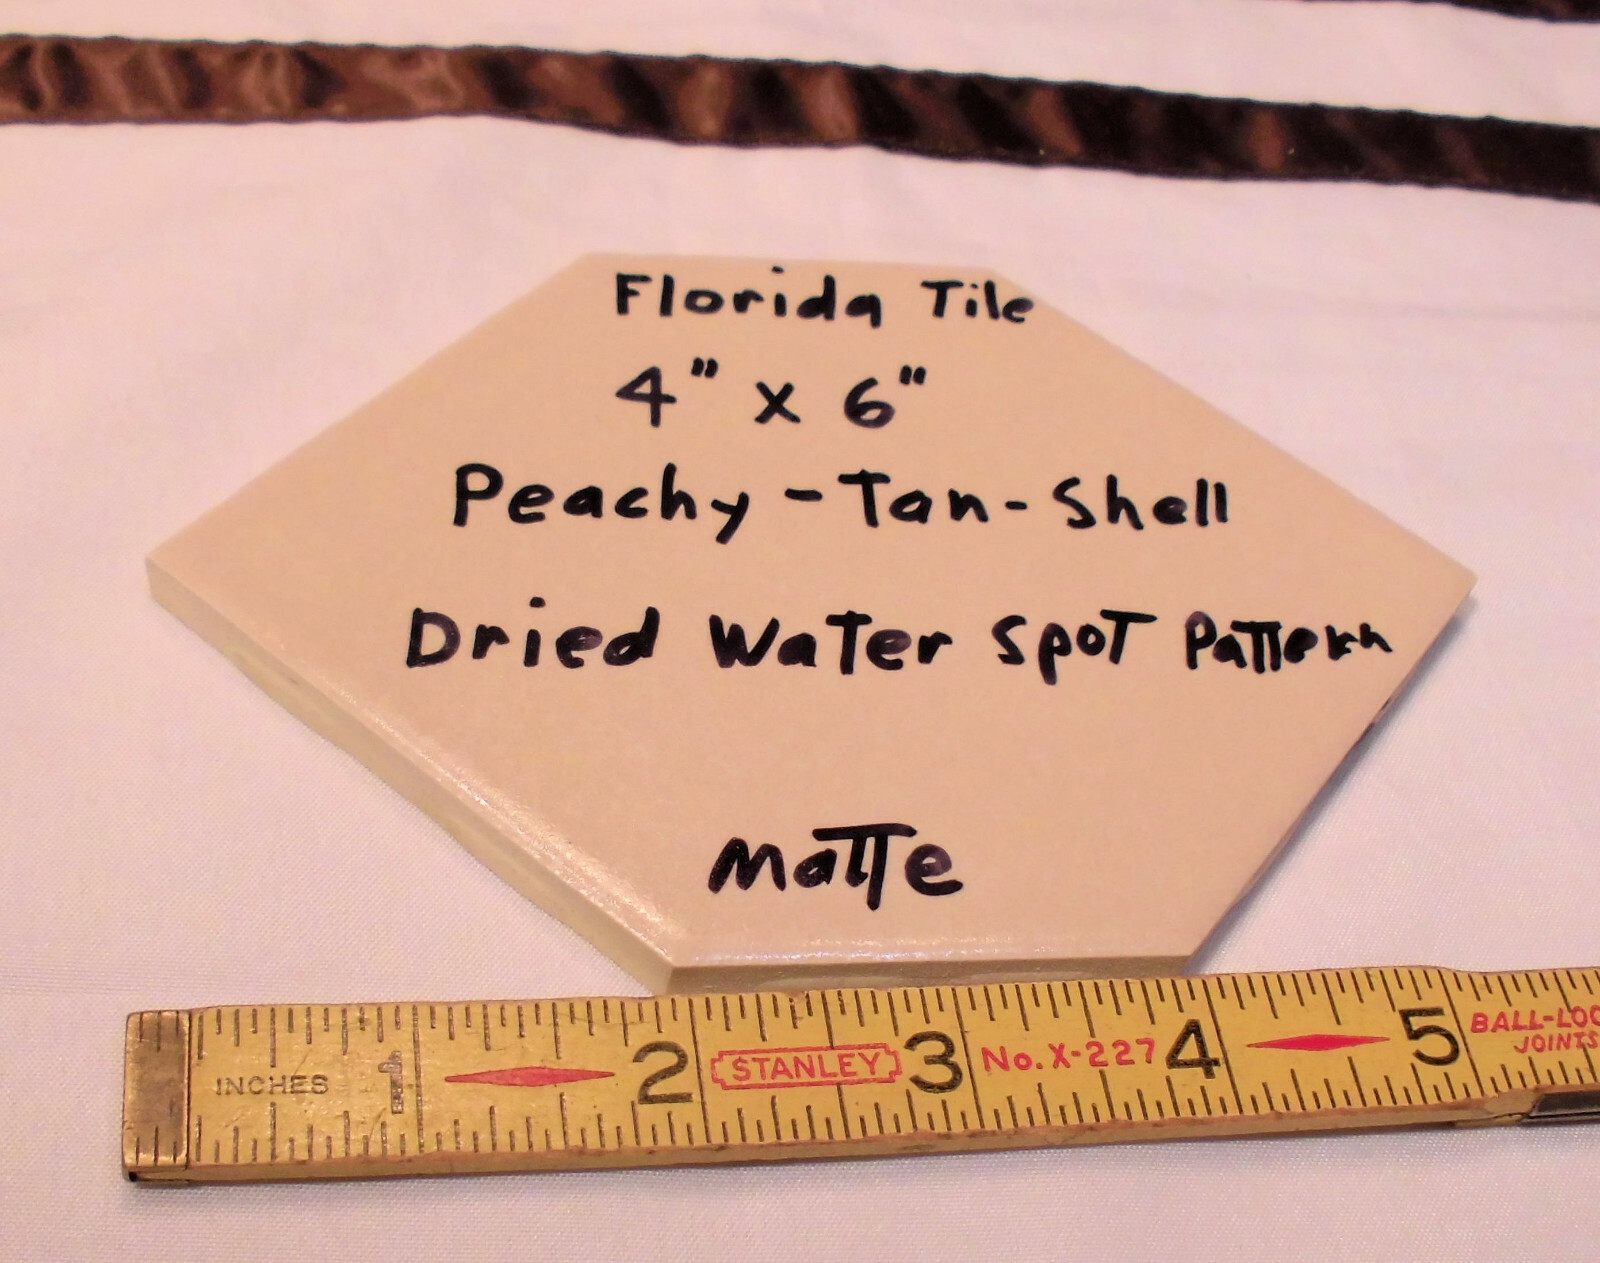 Florida Tile
4" x 6"
Peachy-Tan-Shell
Dried Water Spot Pattern
Matte
INCHES 1 2 STANLEY 3 No. X-227 4 5 BALL-LOC
JOINTS